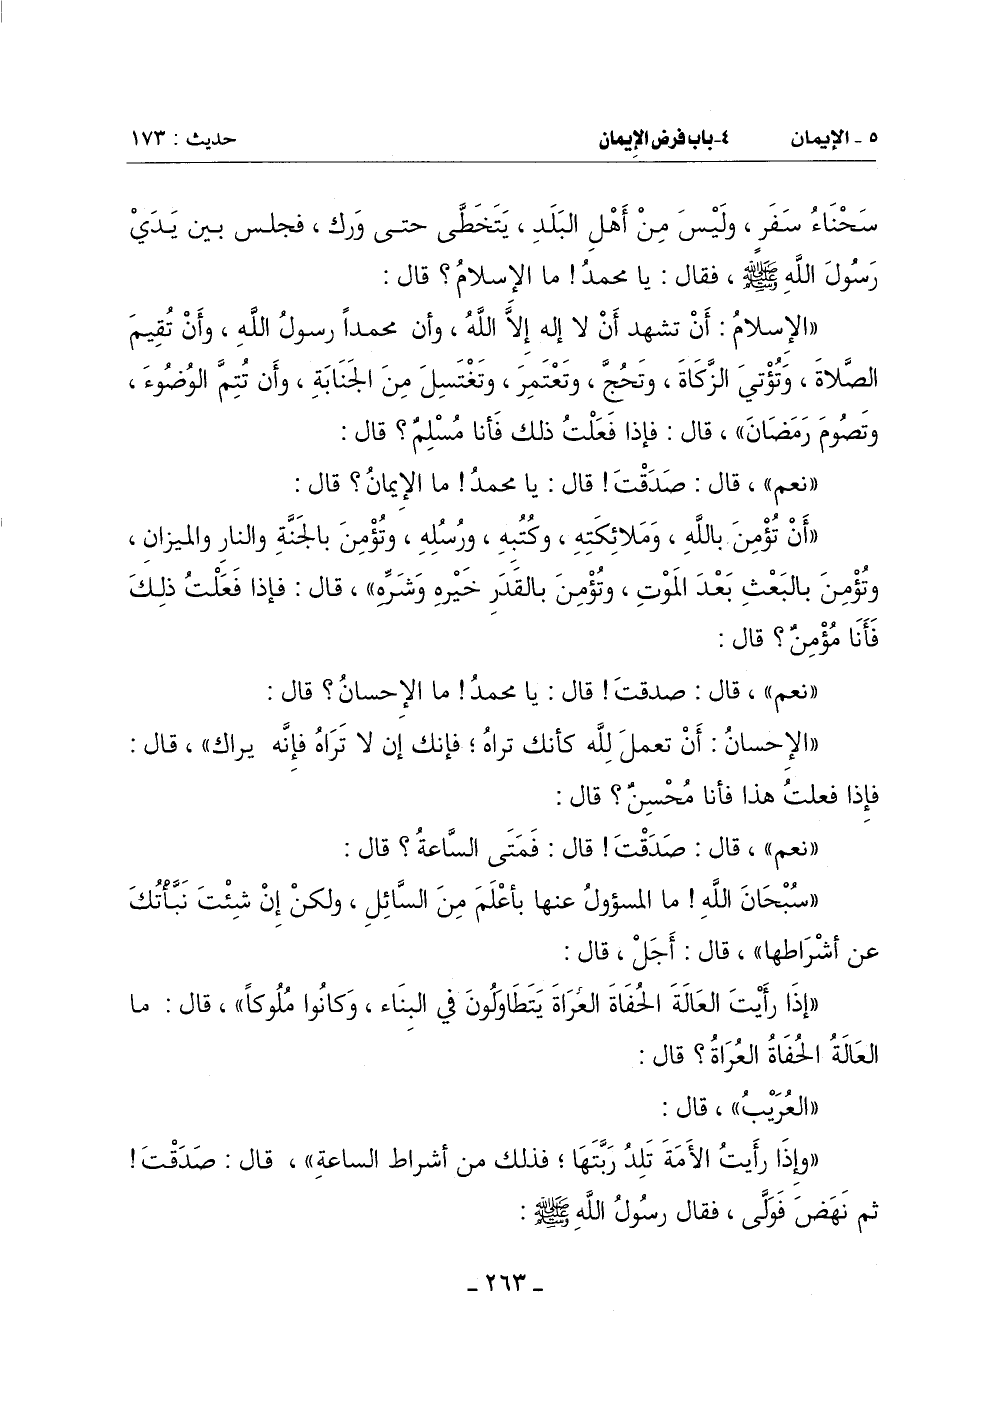 ٥ ـ الإيمان ٤ـ باب فرض الإيمان حديث : ١٧٣
سَحْنَاءُ سَفَرٍ ، ولَيْسَ مِنْ أَهْلِ البَلَدِ ، يَتَخَطَّى حتـى وَرك ، فجلـس بيـن يَـدَيْ
رَسُولَ اللَّهِ ﷺ ، فقال : يا محمدُ ! ما الإسلامُ ؟ قال :
«الإسلامُ : أَنْ تشهد أَنْ لا إله إلاَّ اللَّهُ ، وأن محمداً رسولُ اللَّهِ ، وأَنْ تُقِيمَ
الصَّلاةَ ، وَتُؤْتيَ الزَّكَاةَ ، وتَحُجَّ ، وتَعْتَمِرَ ، وتَغْتَسِلَ مِنَ الجَنَابَةِ ، وأَن تُتِمَّ الوُضُوءَ ،
وتَصُومَ رَمَضَانَ» ، قال : فإذا فَعَلْتُ ذلك فَأنا مُسْلِمٌ ؟ قال :
«نعم» ، قال : صَدَقْتَ ! قال : يا محمدُ ! ما الإيمانُ ؟ قال :
«أَنْ تُؤْمِنَ باللَّهِ ، وَمَلائِكَتِهِ ، وكُتُبِهِ ، ورُسُلِهِ ، وتُؤْمِنَ بالجَنَّةِ والنار والميزان ،
وتُؤْمِنَ بالبَعْثِ بَعْدَ المَوْتِ ، وتُؤْمِنَ بالقَدَرِ خَيْرِهِ وَشَرِّهِ» ، قال : فإذا فَعَلْتُ ذلِكَ
فَأَنَا مُؤْمِنٌ ؟ قال :
«نعم» ، قال : صدقتَ ! قال : يا محمدُ ! ما الإحسانُ ؟ قال :
«الإحسانُ : أَنْ تعملَ لِلَّه كأنك تراهُ ؛ فإنك إن لا تَرَاهُ فإنَّه يراك» ، قال :
فإذا فعلتُ هذا فأنا مُحْسِنٌ ؟ قال :
«نعم» ، قال : صَدَقْتَ ! قال : فَمَتَى السَّاعةُ ؟ قال :
«سُبْحَانَ اللَّهِ ! ما المسؤولُ عنها بأعْلَمَ مِنَ السَّائِلِ ، ولكنْ إنْ شِئْتَ نَبَّأتُكَ
عن أشْرَاطها» ، قال : أَجَلْ ، قال :
«إذَا رأَيْتَ العَالَةَ الحُفَاةَ العُرَاةَ يَتَطَاوَلُونَ في البِنَاء ، وَكانُوا مُلُوكاً» ، قال : ما
العَالَةُ الحُفَاةُ العُرَاةُ ؟ قال :
«العُرَيْبُ» ، قال :
«وإذَا رأَيتُ الأمَةَ تَلِدُ رَبَّتَهَا ؛ فذلك من أشراط الساعةِ» ، قال : صَدَقْتَ !
ثم نَهَضَ فَوَلَّى ، فقال رسولُ اللَّهِ ﷺ :
ـ ٢٦٣ ـ